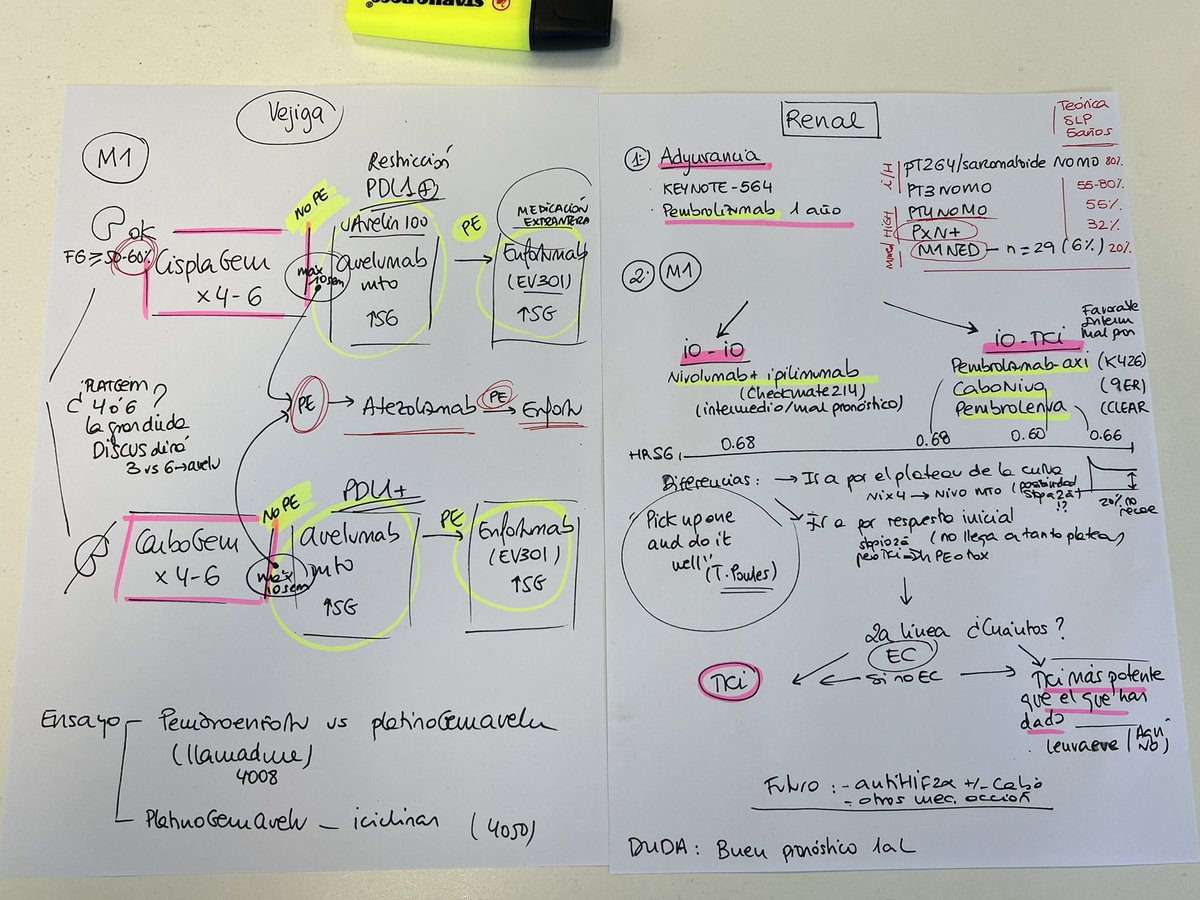 STABILO BOSS®
Vejiga
M1
Restricción
PDL1 ⊕
NO PE
ok
FG ≥ 50-60%
CisplaGem
x 4-6
max
10sem
JAvelin 100
avelumab
mto
↑SG
PE
MEDICACIÓN
EXTRANJERA
Enfortumab
(EV301)
↑SG
¿PLATGEM
4 ó 6 ?
la gran duda
DISCUS dirá
3 vs 6 → avelu
PE → Atezolizumab PE → Enfortu
NO PE
PDL1+
CarboGem
x 4-6
max
10sem
avelumab
mto
↑SG
PE
Enfortumab
(EV301)
↑SG
Ensayo - Pembroenfortu vs platinoGemavelu
(llamadme)
4008
PlatinoGemAvelu - (4050)
Renal
Teórica
SLP
5 años
1: Adyuvancia
· KEYNOTE-564
· Pembrolizumab 1 año
i/H
PT2G4/sarcomatoide N0M0 80%
PT3N0M0 55-80%
HIGH
PT4N0M0 55%
PxN+ 32%
M1NED
M1NED - n=29 (6%) 20%
2: M1
iO - iO
Nivolumab + ipilimumab
(Checkmate 214)
(intermedio/mal pronóstico)
Favorable
Interm
mal pron
iO - TKi
Pembrolizumab-axi (K426)
CaboNivo (9ER)
Pembrolenva (CLEAR
HR SG
0.68
0.68
0.60
0.66
Diferencias: → Ir a por el plateau de la curva
Nix4 → Nivo MTO (posibilidad
stop a 2a
!?
20% no
recae
→ Ir a por respuesta inicial
stop io 2a (no llega a tanto plateau)
pero TKi → h PE o tox
"Pick up one
and do it
well" (T. Powles)
2a línea ¿Cuántos?
EC
TKi
← Si no EC →
TKi más potente
que el que has
dado
· lenvaeve (Aquí
NO)
Futuro: - antiHIF2α +/- Cabo
- otros mec. acción
DUDA: Buen pronóstico 1aL